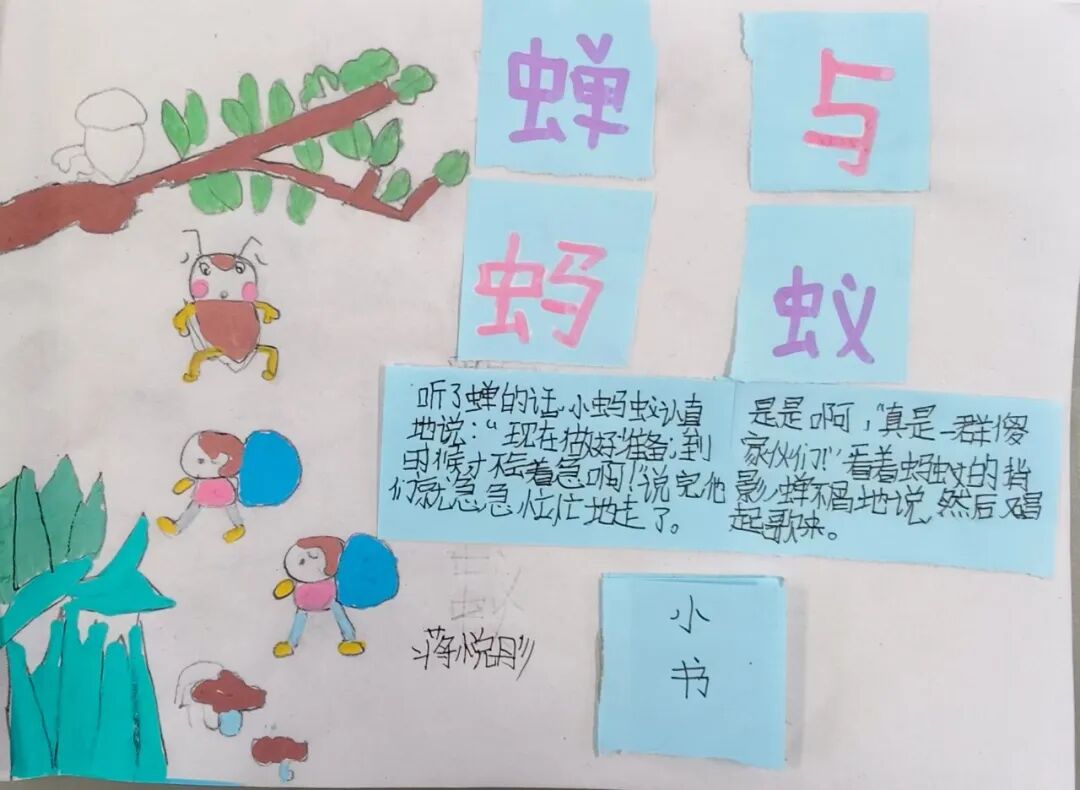 蝉 与
蚂 蚁
听了蝉的话,小蚂蚁认真
地说:“现在做好准备,到
时候才不会着急啊!”说完他
们就急急忙忙地走了。
是是啊,“真是一群傻
家伙们!”看着蚂蚁的背
影,蝉不屑地说,然后又唱
起歌来。
蒋悦
小
书